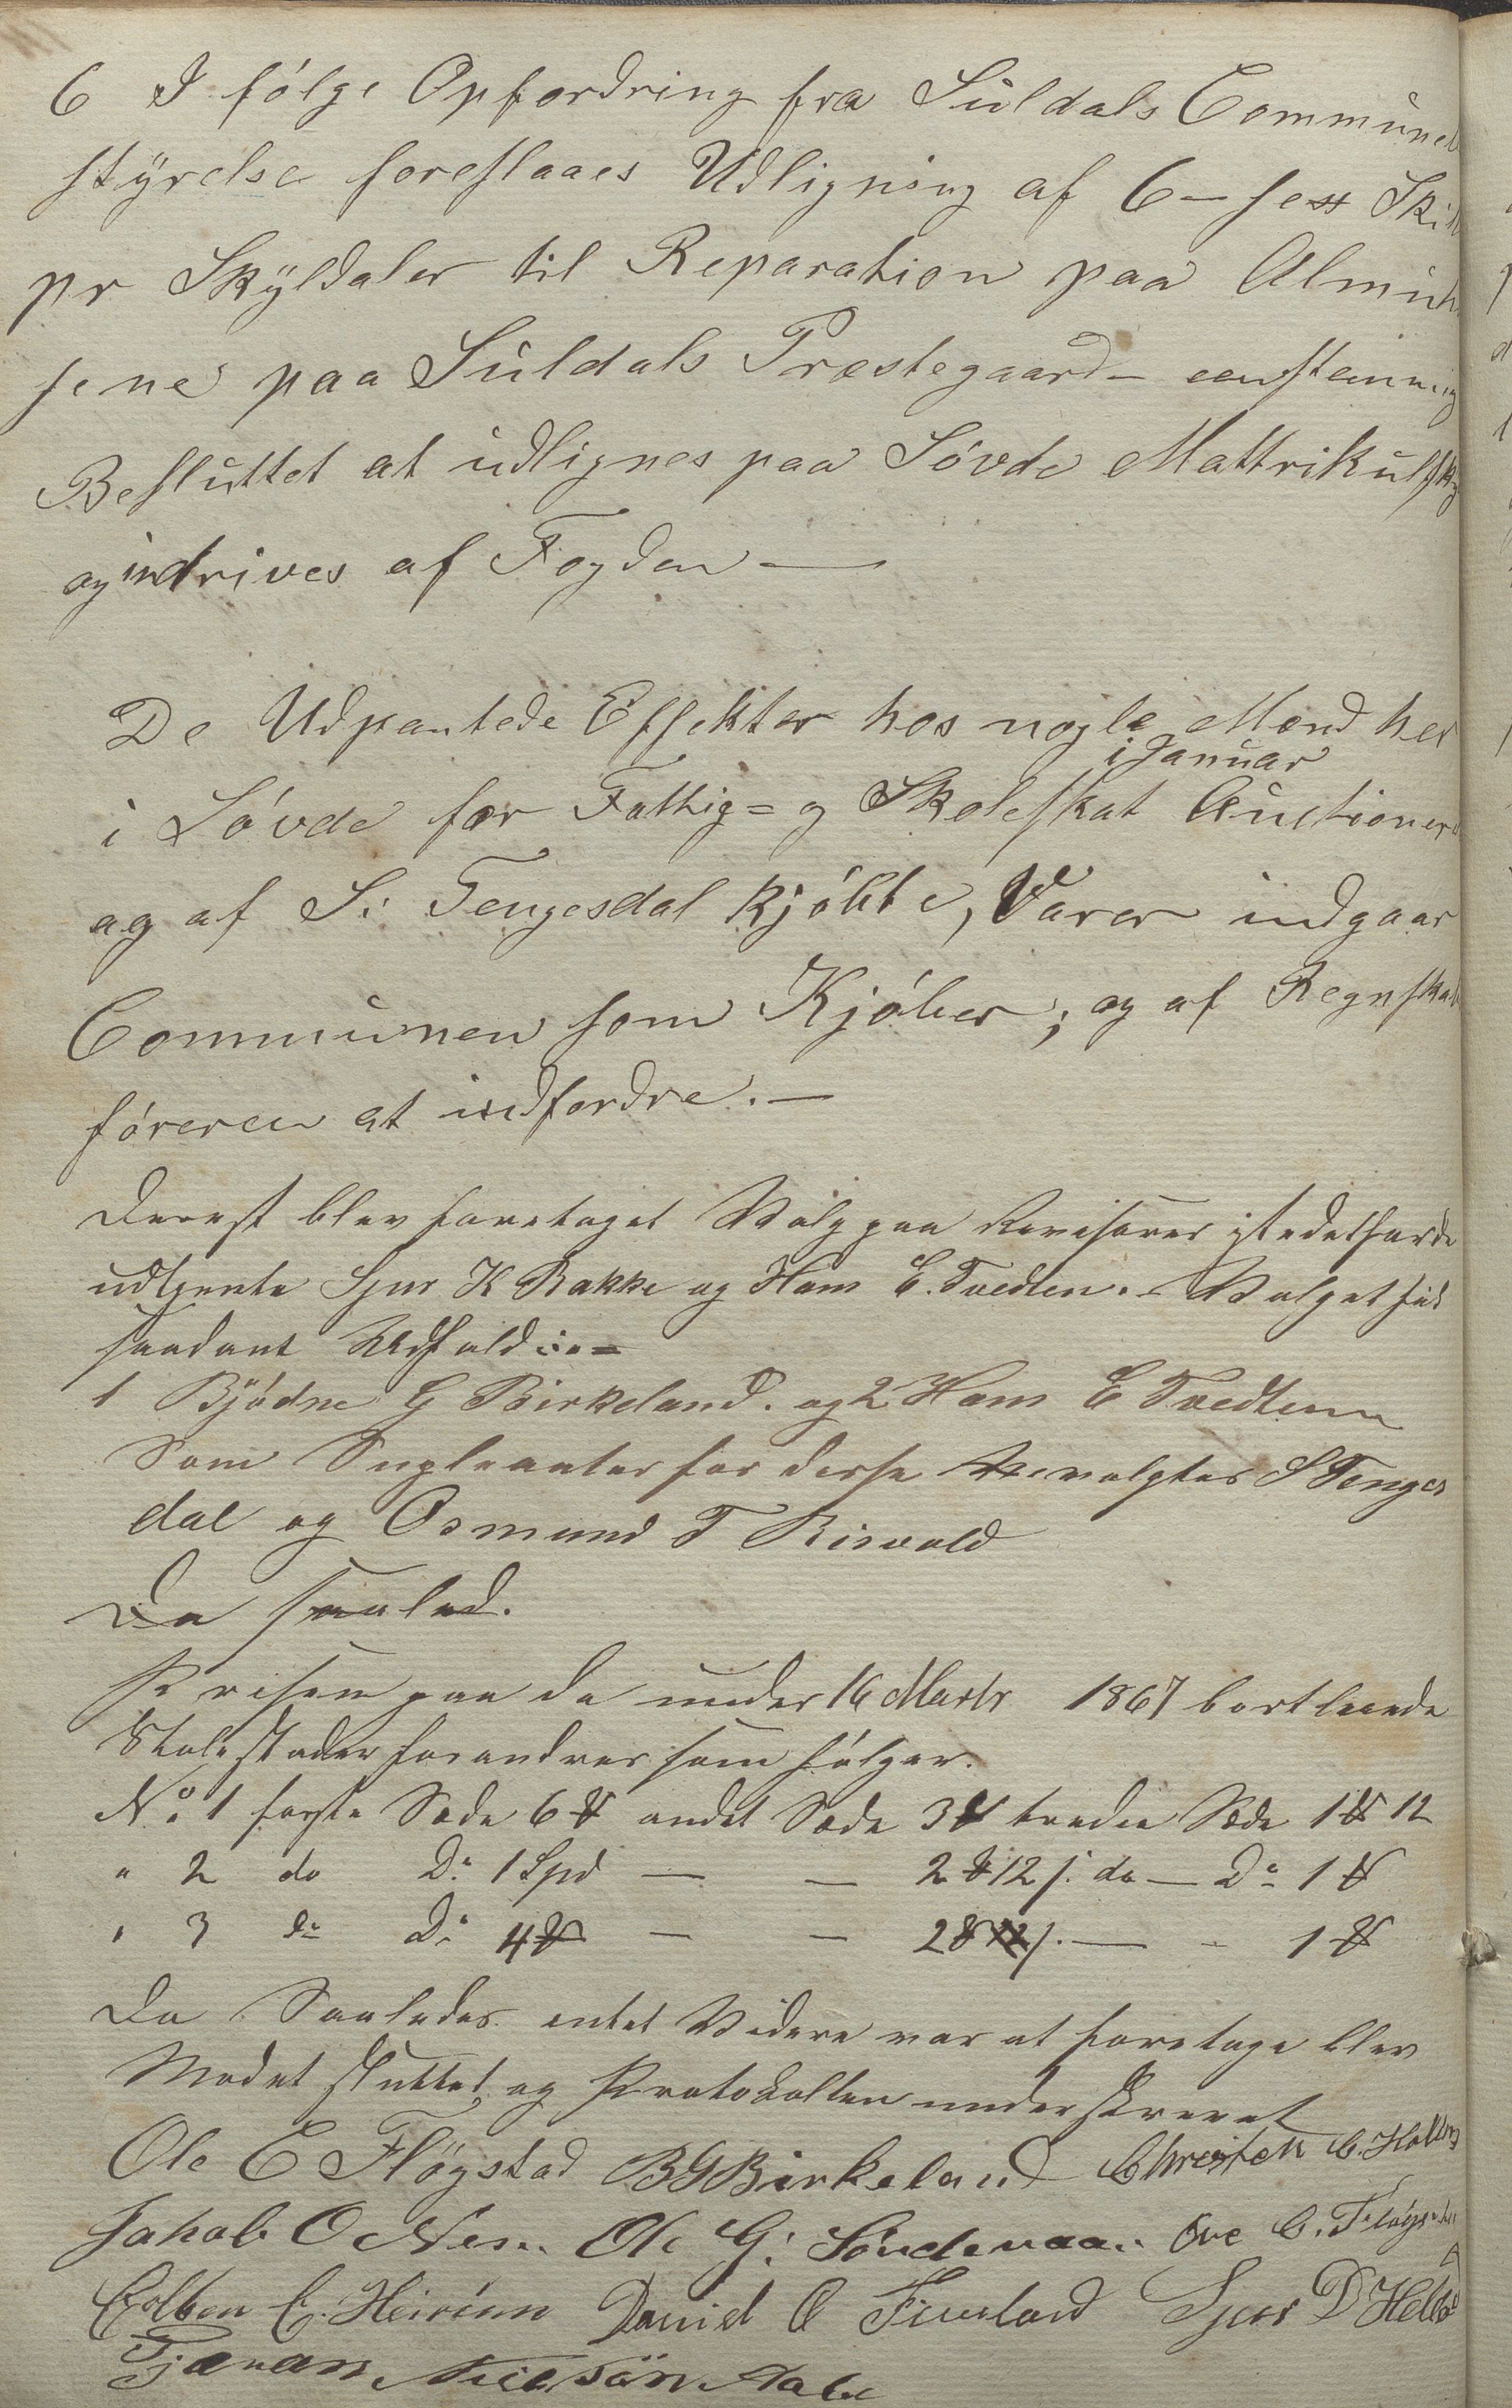 6 I følge Opfordring fra Suldals Commune
styrelse foreslaaes Udligning af 6 - sex Skil
pr Skyldaler til Reparation paa Almuhu
sene paa Suldals Præstegaard - eenstemmig
Besluttet at udlignes paa Søvde Mattrikulsky
og inddrives af Fogden —
De Udpantede Effekter hos nogle Mænd her
i Januar
i Søvde for Fattig= og Skoleskat Auctionere
og af S: Tengesdal kjøbte, Varer indgaar
Communen som Kjøber; og af Regnskab
føreren at indfordre. —
Dernest blev foretaget Valg paa Revisorer istedetforde
udtjente Sjur K Bakke og Hans E. Tvedten. - Valget fik
saadant Udfald :. =
1 Bjødne G Birkeland. og 2 Hans E Tvedtenn
Som Supleanter for disse valgtes S Tenges
dal og Osmund T Risvold
Da saaled.
Prisen paa de under 16 Marts 1867 bortleiede
Stolestader forandres som følger.
No. 1 første Sæde 6 ₰ andet Sæde 3 ₰ tredie Sæde 1 ₰ 12
" 2 do Do 1 Spd — — 2 ₰ 12 s. do — Do 1 ₰
" 3 do Do 4 ₰ — — 2 ₰ 12 s. — - 1 ₰
Da Saaledes intet Videre var at foretage blev
Mødet sluttet og Protokollen underskrevet
Ole E Fløgstad BGBirkeland Christen C. Hallin
Jakob O Nes. Ole G: Søndenaa. Ove C. Fløgst
C. Heirinn David O Fuveland Sjur D Hetl